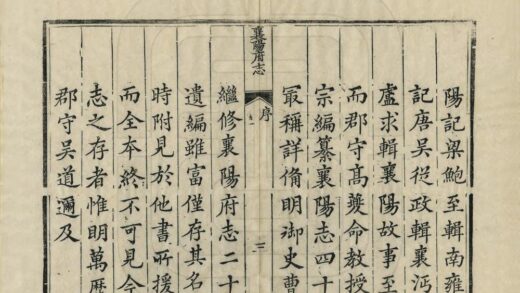 陽記梁鮑至輯南雍
記唐吳從政輯襄沔
盧求輯襄陽故事至
而郡守髙夔命教授
宗編纂襄陽志四十
冣稱詳俻明御史曹
襄陽府志
序
三
繼修襄陽府志二十
遺編雖富僅存其名
時附見於他書所援
而全本終不可見今
志之存者惟明萬厯
郡守吳道邇及